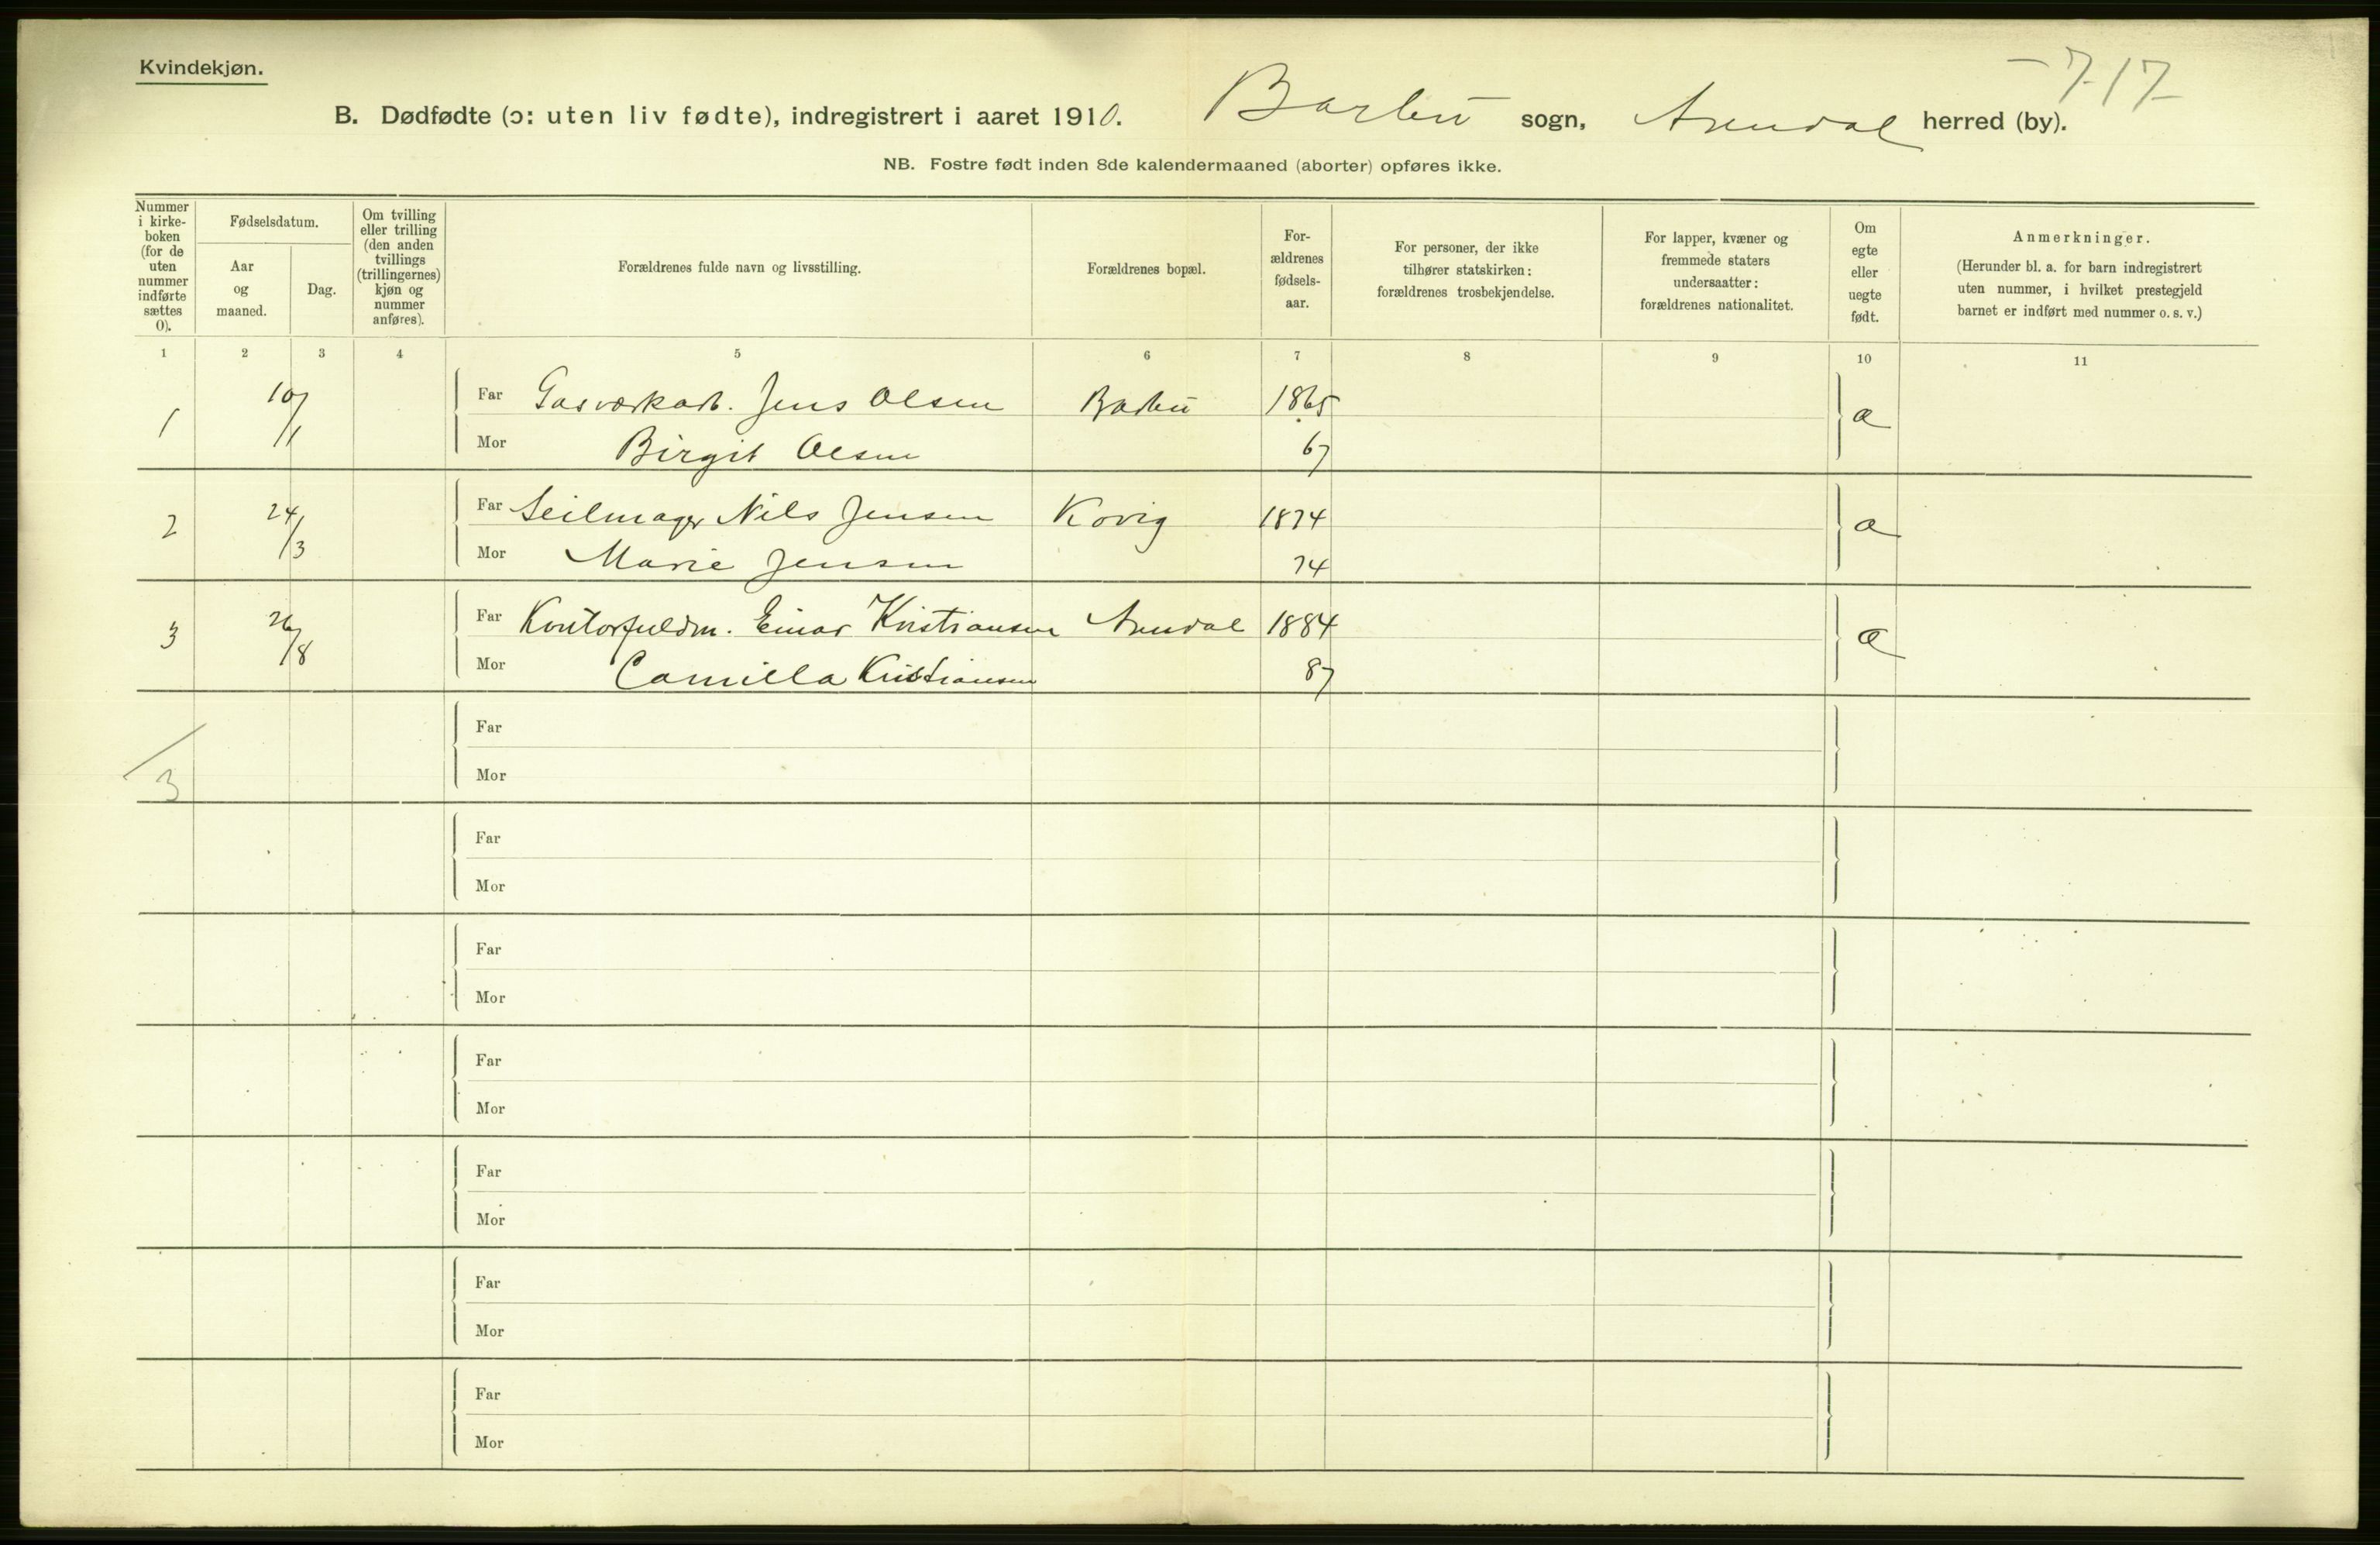 Kvindekjøn.
717
B. Dødfødte (ɔ: uten liv fødte), indregistrert i aaret 1910. Barbu sogn, Arendal herred (by).
NB. Fostre født inden 8de kalendermaaned (aborter) opføres ikke.
Nummer
i kirke-
boken
(for de
uten
nummer
indførte
sættes
0).
Fødselsdatum.
Aar
og
maaned.
Dag.
Om tvilling
eller trilling
(den anden
tvillings
(trillingernes)
kjøn og
nummer
anføres).
Forældrenes fulde navn og livsstilling.
Forældrenes bopæl.
For-
ældrenes
fødsels-
aar.
For personer, der ikke
tilhører statskirken:
forældrenes trosbekjendelse.
For lapper, kvæner og
fremmede staters
undersaatter:
forældrenes nationalitet.
Om
egte
eller
uegte
født.
Anmerkninger.
(Herunder bl. a. for barn indregistrert
uten nummer, i hvilket prestegjeld
barnet er indført med nummer o. s. v.)
1 2 3 4 5 6 7 8 9 10 11
1 10/1 Far Gasværkarb. Jens Olsen Barbu 1865 a
Mor Birgit Olsen 67
2 24/3 Far Seilmager Nils Jensen Kovig 1874 a
Mor Marie Jensen 74
3 26/8 Far Kontorfuldm. Einar Kristiansen Arendal 1884 a
Mor Camilla Kristiansen 87
Far
3 Mor
Far
Mor
Far
Mor
Far
Mor
Far
Mor
Far
Mor
Far
Mor